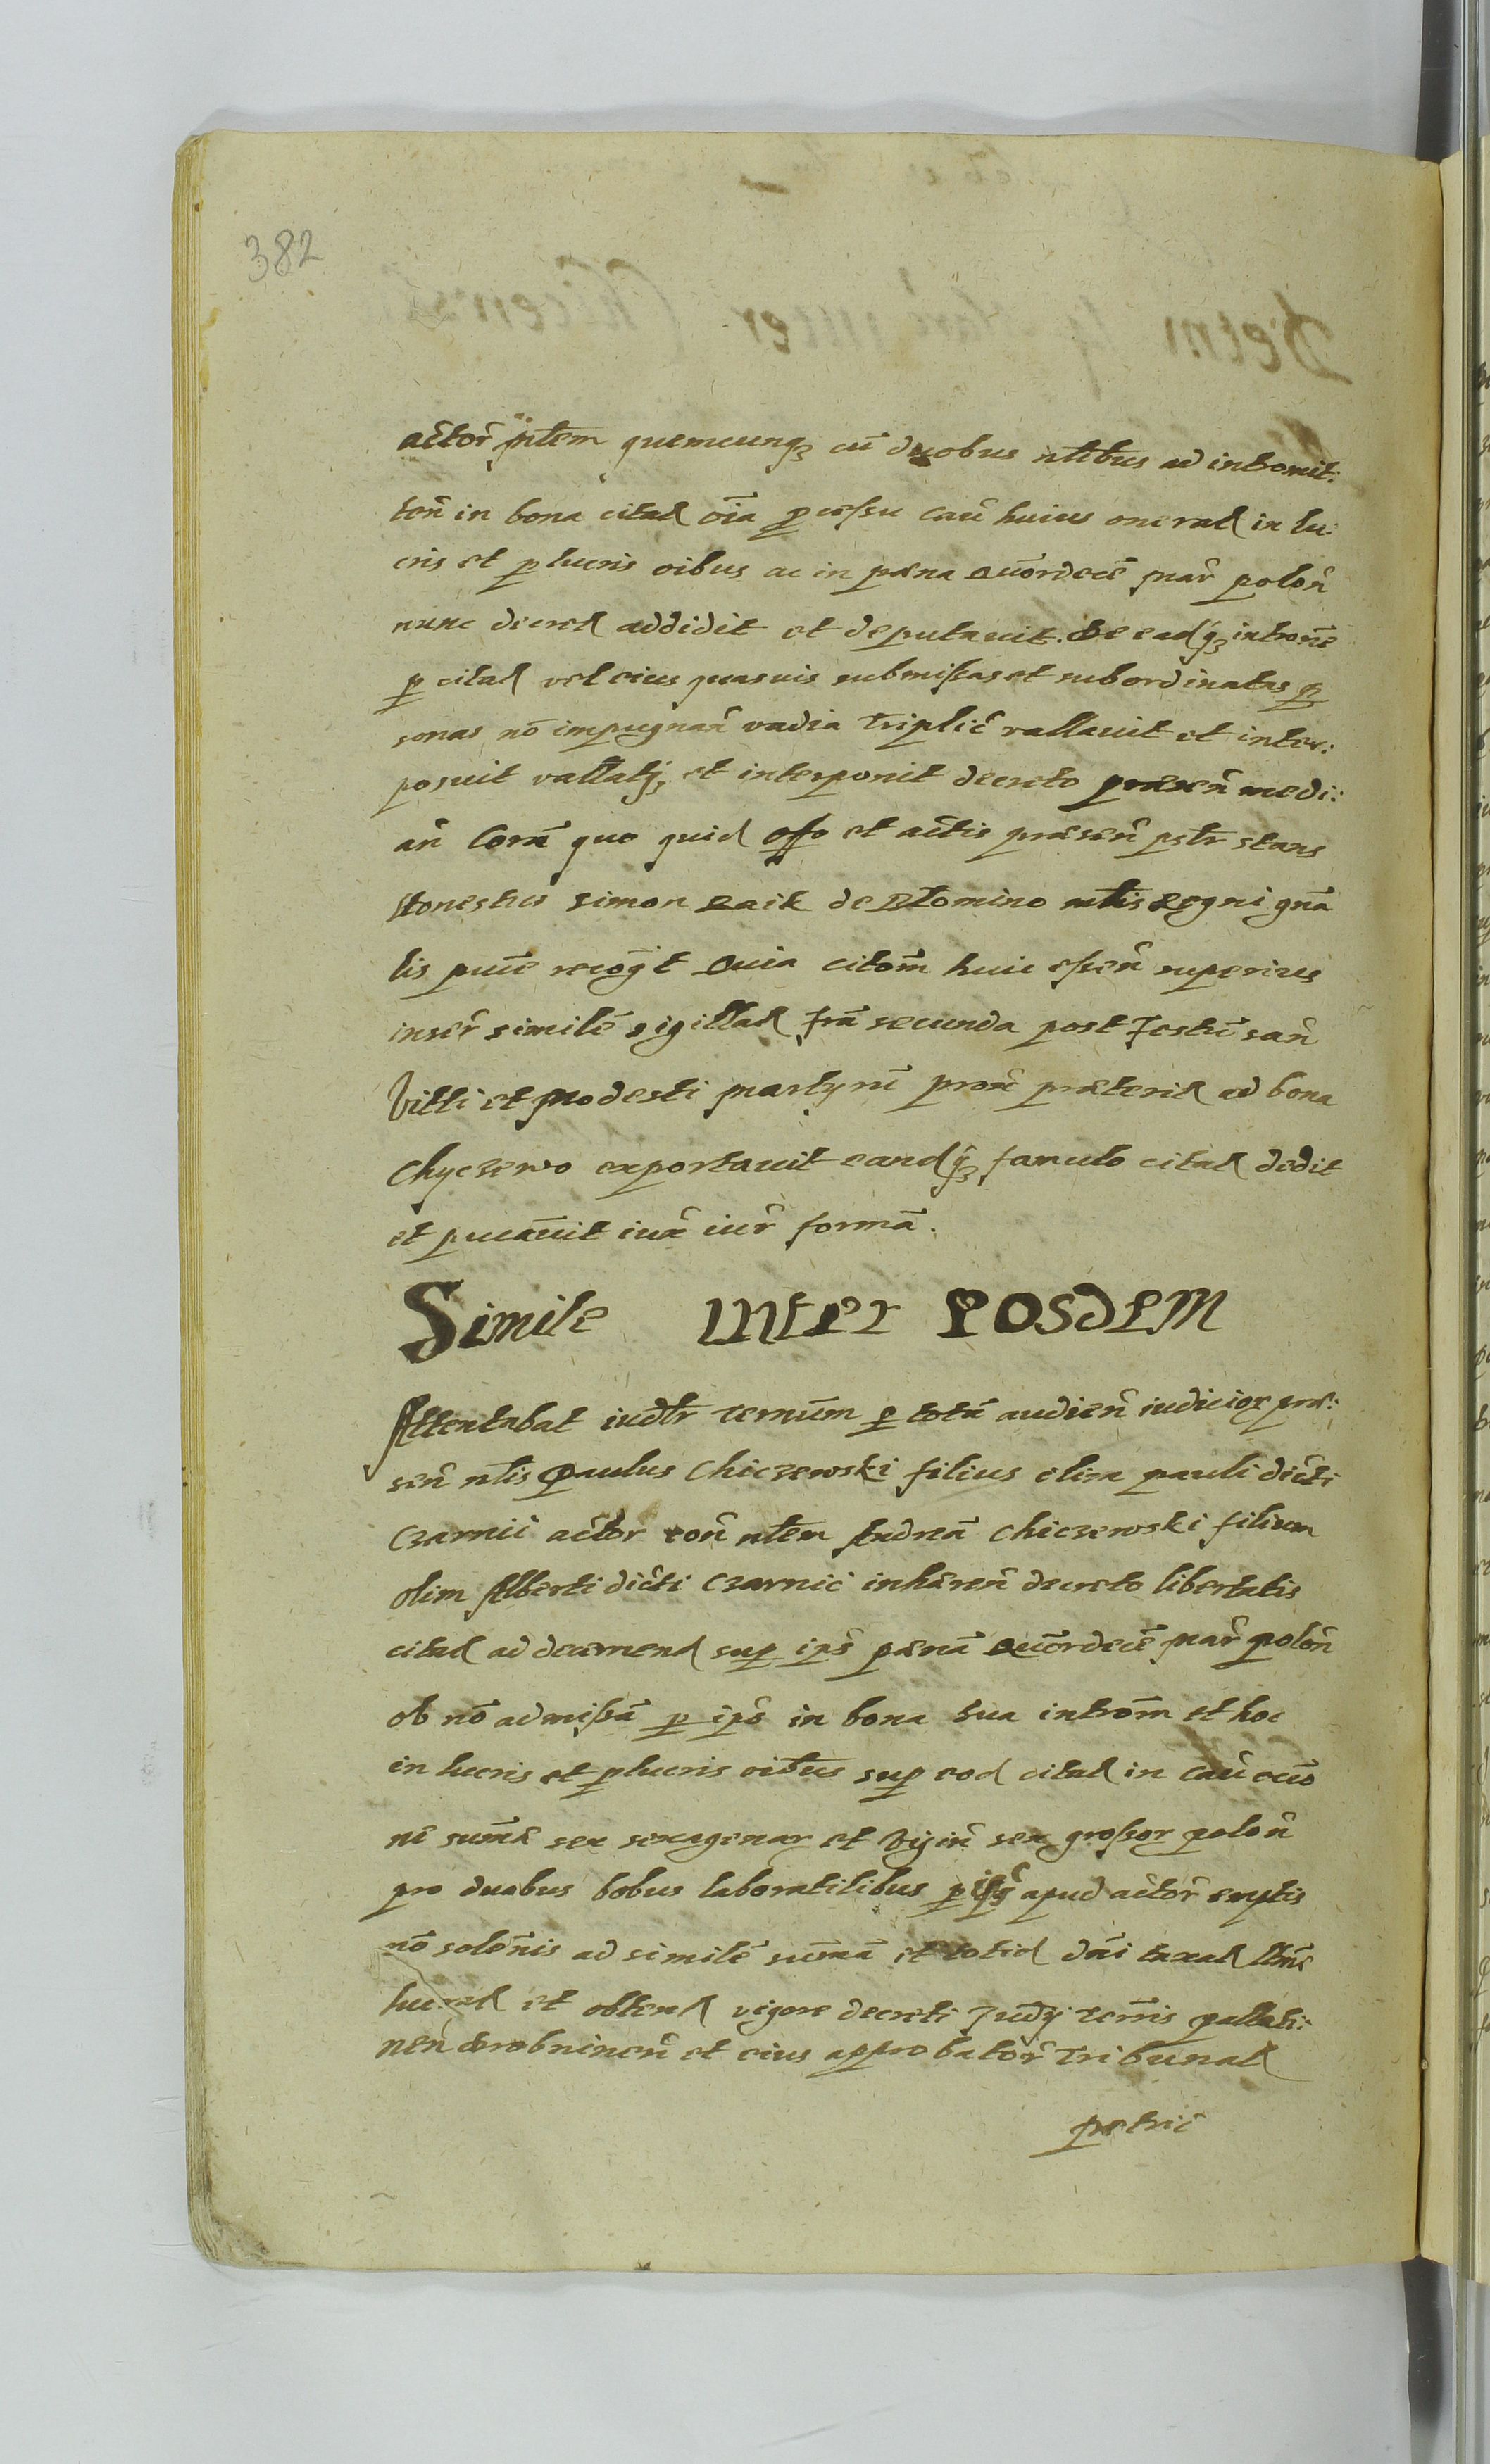 382
actor̃ mtem quemcunqꝫ cũ duobus nl̃ibus ad intromit:
ton̄ in bona citat oĩa ꝓcessu cauẽ huius onerat in lu:
cris et ꝑlucris oibus ac in pæna quõrdecẽ mar̃ polon̄
nunc decret addidit et deputauit. De eadqꝫ intrõne
ꝑ citat vel eius quasuis submissas et subordinatas ꝑ
sonas nõ impugnañ vadia triplic̃ vallauit et inter:
posuit vallatqꝫ et interponit decreto præsen̄ medi:
añ Corã quo quid offo et actis præsen̄ psl̃r stans
Honestus simon Zaik de Domino mtlis Regni gnã
lis puĩe recogt Quia citom̃ huic essen̄ superius
inser̃ similẽ sigillat fr̃ã secunda post Festũ sañ
Vitti et Modesti martyrũ prox̃ præterit ad bona
Chyczewo exportauit eandqꝫ famulo citat dedit
et pucauit iux̃ iur̃ formã.
Simile inter eosdem
Attentabat iudl̃r ternum̃ ꝑ totã audien̄ iudicioꝝ præ:
sen̄ nl̃is Paulus Chiczewski filius olim pauli dicti
Czarnii actor con̄ nl̃em Andreã Chiczewski filium
olim Alberti dicti Czarnic inhæren̄ decreto libertatis
citat ad decernend sup ips̃ pænã quõrdecẽ mar̃ polon̄
ob nõ admissã ꝑ ips̃ in bona sua introm̃ et hoc
in lucris et ꝑlucris oibus sup eod citat in cauẽ
ne sum̃æ sex sexagenaꝝ et Viginĩ sex grossoꝝ polon̄
pro duobus bobus laboratilibus ꝑ apud actor̃ emptis
nõ solen̄is ad similẽ sum̃ã et totid dñi taxat
lucrat et obtent vigore decreti Judij ter̃ris pallati:
nen̄ Drobninen̄ et eius approbator̃ Tribunal
petric